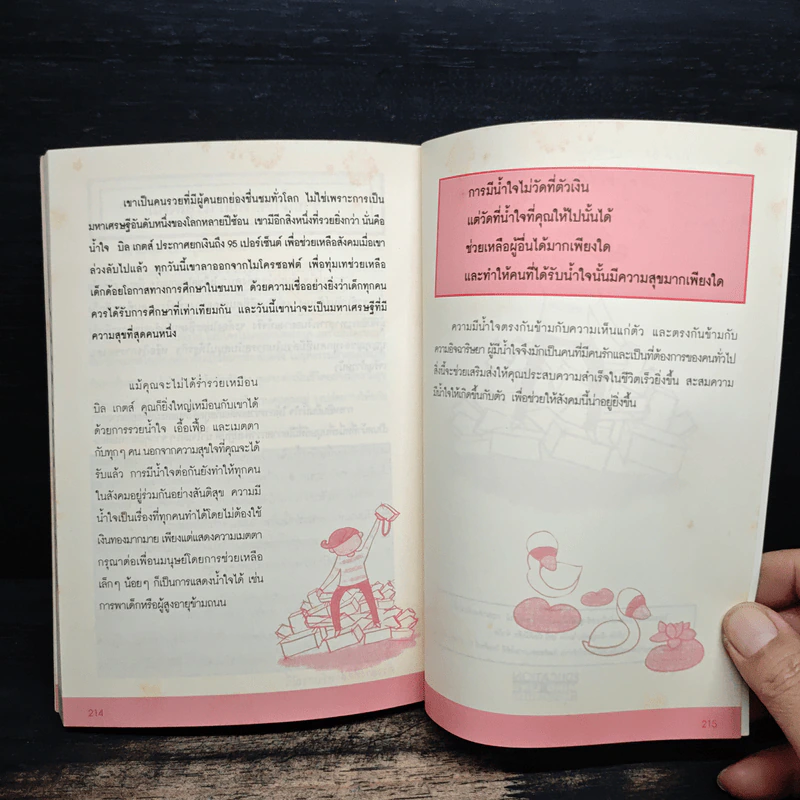 เขาเป็นคนรวยที่มีผู้คนยกย่องชื่นชมทั่วโลก ไม่ใช่เพราะการเป็น
มหาเศรษฐีอันดับหนึ่งของโลกหลายปีซ้อน เขามีอีกสิ่งหนึ่งที่รวยยิ่งกว่า นั่นคือ
น้ำใจ บิล เกตส์ ประกาศยกเงินถึง 95 เปอร์เซ็นต์ เพื่อช่วยเหลือสังคมเมื่อเขา
ล่วงลับไปแล้ว ทุกวันนี้เขาลาออกจากไมโครซอฟต์ เพื่อทุ่มเทช่วยเหลือ
เด็กด้อยโอกาสทางการศึกษาในชนบท ด้วยความเชื่ออย่างยิ่งว่าเด็กทุกคน
ควรได้รับการศึกษาที่เท่าเทียมกัน และวันนี้เขาน่าจะเป็นมหาเศรษฐีที่มี
ความสุขที่สุดคนหนึ่ง
แม้คุณจะไม่ได้ร่ำรวยเหมือน
บิล เกตส์ คุณก็ยิ่งใหญ่เหมือนกับเขาได้
ด้วยการรวยน้ำใจ เอื้อเฟื้อ และเมตตา
กับทุกๆ คน นอกจากความสุขใจที่คุณจะได้
รับแล้ว การมีน้ำใจต่อกันยังทำให้ทุกคน
ในสังคมอยู่ร่วมกันอย่างสันติสุข ความมี
น้ำใจเป็นเรื่องที่ทุกคนทำได้โดยไม่ต้องใช้
เงินทองมากมาย เพียงแต่แสดงความเมตตา
กรุณาต่อเพื่อนมนุษย์โดยการช่วยเหลือ
เล็กๆ น้อยๆ ก็เป็นการแสดงน้ำใจได้ เช่น
การพาเด็กหรือผู้สูงอายุข้ามถนน
214
การมีน้ำใจไม่วัดที่ตัวเงิน
แต่วัดที่น้ำใจที่คุณให้ไปนั้นได้
ช่วยเหลือผู้อื่นได้มากเพียงใด
และทำให้คนที่ได้รับน้ำใจนั้นมีความสุขมากเพียงใด
ความมีน้ำใจตรงกันข้ามกับความเห็นแก่ตัว และตรงกันข้ามกับ
ความอิจฉาริษยา ผู้มีน้ำใจจึงมักเป็นคนที่มีคนรักและเป็นที่ต้องการของคนทั่วไป
สิ่งนี้จะช่วยเสริมส่งให้คุณประสบความสำเร็จในชีวิตเร็วยิ่งขึ้น สะสมความ
มีน้ำใจให้เกิดขึ้นกับตัว เพื่อช่วยให้สังคมนี้น่าอยู่ยิ่งขึ้น
215